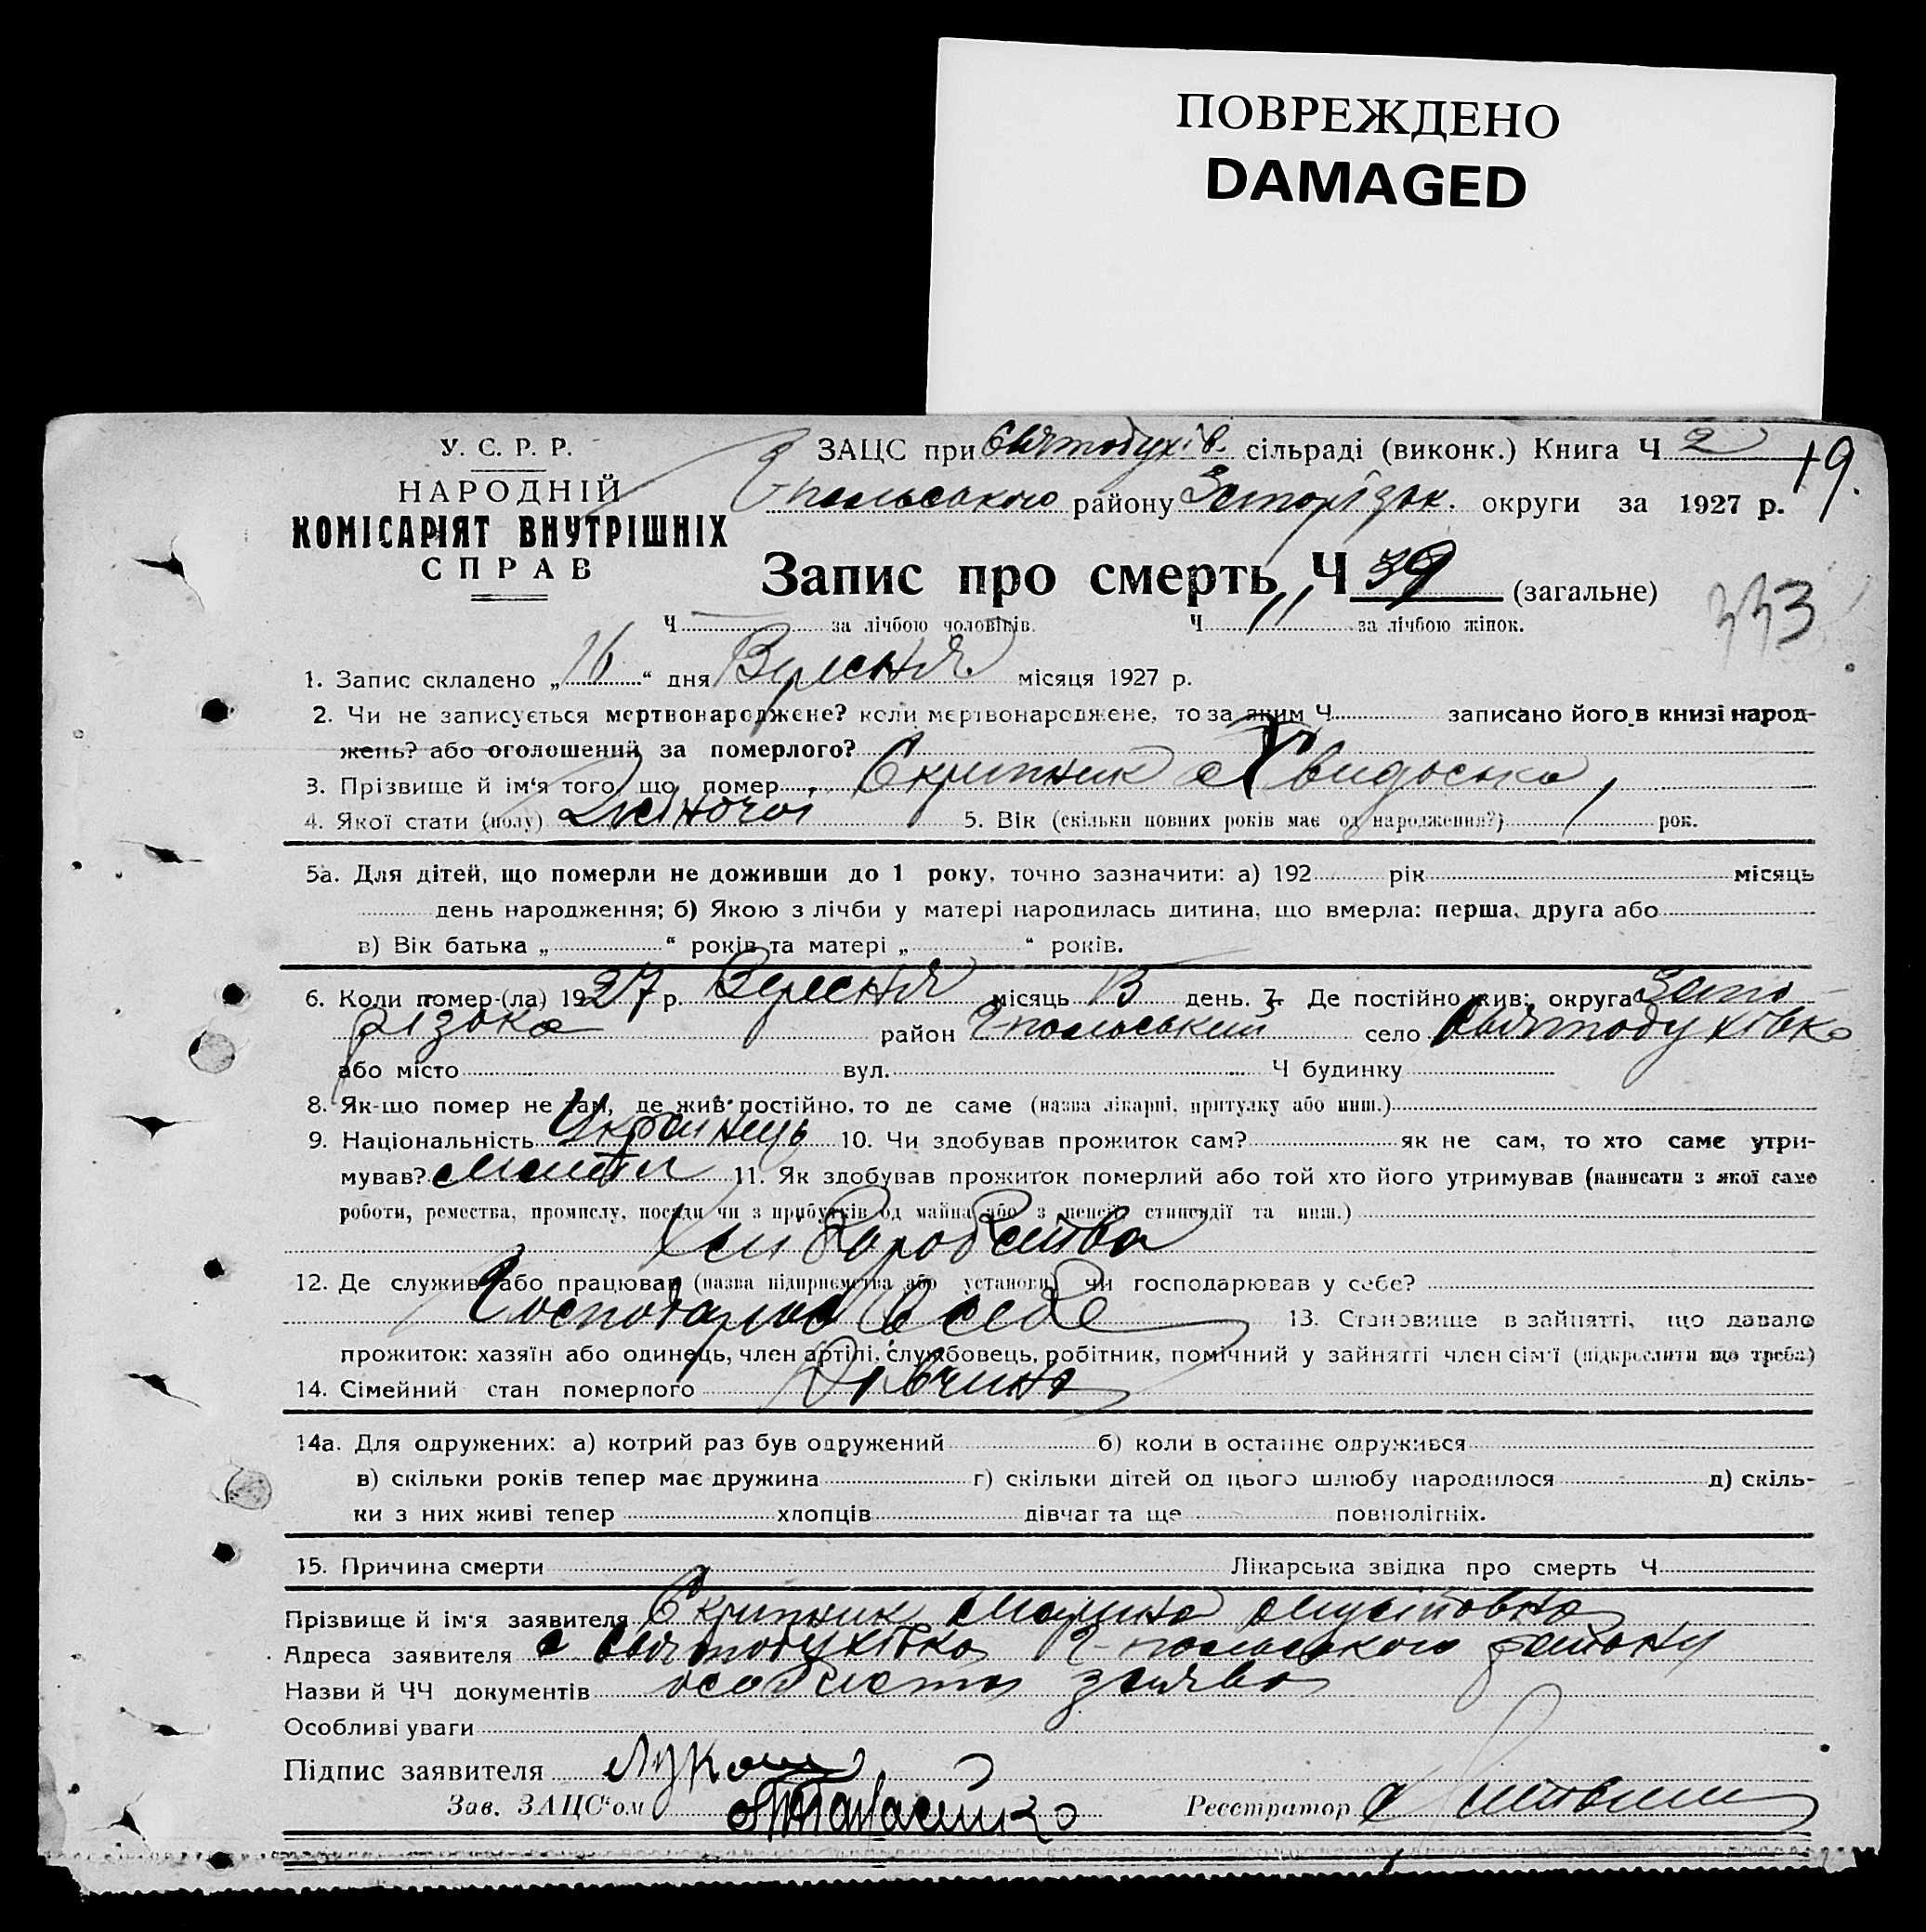 ПОВРЕЖДЕНО
DAMAGED
У. С. Р. Р.
НАРОДНІЙ
КОМІСАРІЯТ ВНУТРІШНІХ
СПРАВ
ЗАЦС при Святодухів. сільраді (виконк.) Книга Ч 2
19.
польського району Запоріжж. округи за 1927 р.
Запис про смерть Ч 39 (загальне)
333
Ч — за лічбою чоловіків. Ч 11 за лічбою жінок.
1. Запис складено „16“ дня Вересня місяця 1927 р.
2. Чи не записується мертвонароджене? коли мертвонароджене, то за яким Ч записано його в книзі народ-
жень? або оголошений за померлого?
3. Прізвище й ім'я того, що помер Скрипник Хвидоська
4. Якої стати (полу) Жіночої 5. Вік (скільки повних років має од народження?) 1 рок.
5а. Для дітей, що померли не доживши до 1 року, точно зазначити: а) 192 рік місяць
день народження; б) Якою з лічби у матері народилась дитина, що вмерла: перша, друга або
в) Вік батька „ “ років та матері „ “ років.
6. Коли помер-(ла) 1927 р. Вересня місяць 15 день. 7. Де постійно жив: округа Запо-
різька район Г-польський село Святодухівка
або місто вул. Ч будинку
8. Як-що помер не там, де жив постійно, то де саме (назва лікарні, притулку або инш.)
9. Національність Українець 10. Чи здобував прожиток сам? як не сам, то хто саме утри-
мував? Мати 11. Як здобував прожиток померлий або той хто його утримував (написати з якої саме
роботи, ремества, промислу, посади чи з прибутків од майна або з пенсії, стипендії та инш.)
Хлиборобства
12. Де служив або працював (назва підприємства або установи) чи господарював у себе?
Господарює в себе 13. Становище в зайнятті, що давало
прожиток: хазяїн або одинець, член артілі, службовець, робітник, помічний у зайнятті член сім'ї (підкреслити що треба)
14. Сімейний стан померлого Дівчина
14а. Для одружених: а) котрий раз був одружений б) коли в останнє одружився
в) скільки років тепер має дружина г) скільки дітей од цього шлюбу народилося д) скіль-
ки з них живі тепер хлопців дівчат та ще повнолітніх.
15. Причина смерти Лікарська звідка про смерть Ч
Прізвище й ім'я заявителя Скрипник Марина
Адреса заявителя с Святодухівка Г-польського району
Назви й ЧЧ документів особиста заява
Особливі уваги
Підпис заявителя
Зав. ЗАЦС'ом Реєстратор